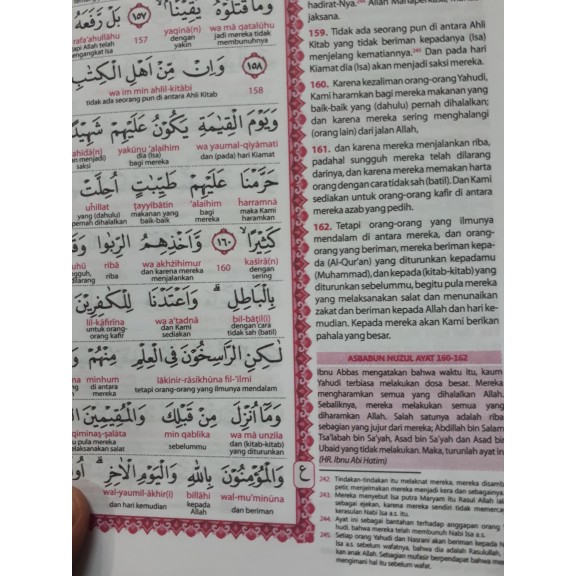 وَمَا قَتَلُوْهُ يَقِيْنًاۢ ۙ ١٥٧ بَلْ رَّفَعَهُ
wa mā qatalūhu yaqīnā(n) rafa'ahullāhu
jadi mereka tidak membunuhnya dengan yakin 157 tapi Allah telah mengangkat Isa
١٥٨ وَاِنْ مِّنْ اَهْلِ الْكِتٰبِ
158 wa im min ahlil-kitābi
tidak ada seorang pun di antara Ahli Kitab
وَيَوْمَ الْقِيٰمَةِ يَكُوْنُ عَلَيْهِمْ شَهِيْدًا
wa yaumal-qiyāmati yakūnu 'alaihim
dan (pada) hari Kiamat dia (Isa) bagi mereka saksi
حَرَّمْنَا عَلَيْهِمْ طَيِّبٰتٍ اُحِلَّتْ
harramnā 'alaihim ṭayyibātin uḥillat
maka Kami haramkan bagi mereka makanan yang baik-baik yang (dahulu) pernah dihalalkan
كَثِيْرًاۙ ١٦٠ وَّاَخْذِهِمُ الرِّبٰوا
kaṡīrā(n) 160 wa akhżihimur ribā
dengan sering dan karena mereka menjalankan riba
بِالْبَاطِلِ ۗ وَاَعْتَدْنَا لِلْكٰفِرِيْنَ
bil-bāṭil(i) wa a'tadnā lil-kāfirīna
dengan cara tidak sah (batil) dan Kami sediakan untuk orang-orang kafir
لٰكِنِ الرّٰسِخُوْنَ فِى الْعِلْمِ مِنْهُمْ
lākinir-rāsikhūna fil-'ilmi minhum
tetapi orang-orang yang ilmunya mendalam di antara mereka
وَمَآ اُنْزِلَ مِنْ قَبْلِكَ وَالْمُقِيْمِيْنَ
wa mā unzila min qablika
dan (kitab-kitab) yang diturunkan sebelummu
وَالْمُؤْمِنُوْنَ بِاللّٰهِ وَالْيَوْمِ الْاٰخِرِ ۗ
wal-mu'minūna billāhi wal-yaumil-ākhir(i)
dan beriman kepada Allah dan hari kemudian
ع
jaksana.
159. Tidak ada seorang pun di antara Ahli
Kitab yang tidak beriman kepadanya (Isa)
menjelang kematiannya.245 Dan pada hari
Kiamat dia (Isa) akan menjadi saksi mereka.
160. Karena kezaliman orang-orang Yahudi,
Kami haramkan bagi mereka makanan yang
baik-baik yang (dahulu) pernah dihalalkan;
dan karena mereka sering menghalangi
(orang lain) dari jalan Allah,
161. dan karena mereka menjalankan riba,
padahal sungguh mereka telah dilarang
darinya, dan karena mereka memakan harta
orang dengan cara tidak sah (batil). Dan Kami
sediakan untuk orang-orang kafir di antara
mereka azab yang pedih.
162. Tetapi orang-orang yang ilmunya
mendalam di antara mereka, dan orang-
orang yang beriman, mereka beriman kepa-
da (Al-Qur'an) yang diturunkan kepadamu
(Muhammad), dan kepada (kitab-kitab) yang
diturunkan sebelummu, begitu pula mereka
yang melaksanakan salat dan menunaikan
zakat dan beriman kepada Allah dan hari ke-
mudian. Kepada mereka akan Kami berikan
pahala yang besar.
ASBABUN NUZUL AYAT 160-162
Ibnu Abbas mengatakan bahwa waktu itu, kaum
Yahudi terbiasa melakukan dosa besar. Mereka
mengharamkan semua yang dihalalkan Allah.
Sebaliknya, mereka melakukan semua yang
diharamkan Allah. Salah satunya adalah riba
sebagian yang jujur dari mereka; Abdillah bin Salam
Tsa'labah bin Sa'yah, Asad bin Sa'yah dan Asad bin
Ubaid yang tidak melakukan. Maka, turunlah ayat ini
(HR. Ibnu Abi Hatim)
242. Tindakan-tindakan itu melaknat mereka, mereka disamb
petir, menjelmakan mereka menjadi kera dan sebagainya.
243. Mereka menyebut Isa putra Maryam itu Rasul Allah ial
sebagai ejekan, karena mereka sendiri tidak memerca
kerasulan Nabi Isa a.s. itu.
244. Ayat ini sebagai bantahan terhadap anggapan orang
hudi, bahwa mereka telah membunuh Nabi Isa a.s.
245. Setiap orang Yahudi dan Nasrani akan beriman kepada N
Isa a.s. sebelum wafatnya, bahwa dia adalah Rasulullah,
kan anak Allah. Sebagian mufasir berpendapat bahwa mere
mengimani hal itu sebelum wafat.